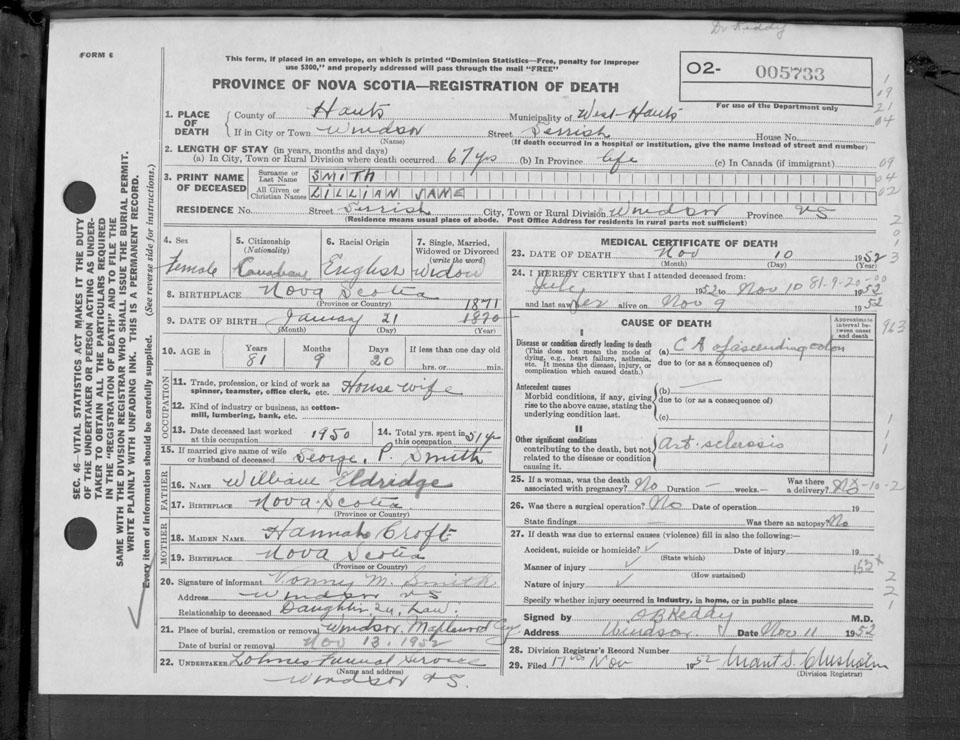 Dr Reddy
FORM 6
This form, if placed in an envelope, on which is printed "Dominion Statistics—Free, penalty for improper
use $300," and properly addressed will pass through the mail "FREE"
PROVINCE OF NOVA SCOTIA—REGISTRATION OF DEATH
02- 005733
For use of the Department only
1. PLACE OF DEATH
County of Hants Municipality of West-Hants
If in City or Town Windsor Street Gerrish House No.
(Name) (If death occurred in a hospital or institution, give the name instead of street and number)
2. LENGTH OF STAY (in years, months and days)
(a) In City, Town or Rural Division where death occurred 67 yrs (b) In Province life (c) In Canada (if immigrant)
3. PRINT NAME OF DECEASED
Surname or Last Name SMITH
All Given or Christian Names LILLIAN JANE
RESIDENCE No. Street Gerrish City, Town or Rural Division Windsor Province NS
(Residence means usual place of abode. Post Office Address for residents in rural parts not sufficient)
4. Sex Female
5. Citizenship (Nationality) Canadian
6. Racial Origin English
7. Single, Married, Widowed or Divorced (write the word) Widow
8. BIRTHPLACE Nova Scotia
(Province or Country)
1871
9. DATE OF BIRTH January 21 1870
(Month) (Day) (Year)
10. AGE in Years Months Days If less than one day old
81 9 20 hrs. or min.
OCCUPATION
11. Trade, profession, or kind of work as spinner, teamster, office clerk, etc. House wife
12. Kind of industry or business, as cotton-mill, lumbering, bank, etc.
13. Date deceased last worked at this occupation 1950
14. Total yrs. spent in this occupation 51 yrs
15. If married give name of wife or husband of deceased George. P. Smith
FATHER
16. NAME William Eldridge
17. BIRTHPLACE Nova Scotia
(Province or Country)
MOTHER
18. MAIDEN NAME Hannah Croft
19. BIRTHPLACE Nova Scotia
(Province or Country)
20. Signature of informant M. Smith
Address Windsor NS
Relationship to deceased Daughter In Law.
21. Place of burial, cremation or removal Windsor, Maplewood Cey
Date of burial or removal Nov 13. 1952
22. UNDERTAKER Lohnes Funeral Service
(Name and address)
Windsor NS.
MEDICAL CERTIFICATE OF DEATH
23. DATE OF DEATH Nov 10 1952
(Month) (Day) (Year)
24. I HEREBY CERTIFY that I attended deceased from:
July 1952 to Nov 10 1952
81-9-20-00
and last saw her alive on Nov 9 1952
CAUSE OF DEATH
Approximate interval between onset and death
963
I
Disease or condition directly leading to death
(This does not mean the mode of dying, e.g., heart failure, asthenia, etc. It means the disease, injury, or complication which caused death.)
(a) CA of ascending colon
due to (or as a consequence of)
Antecedent causes
Morbid conditions, if any, giving rise to the above cause, stating the underlying condition last.
(b) —
due to (or as a consequence of)
(c)
II
Other significant conditions
contributing to the death, but not related to the disease or condition causing it.
Art. sclerosis
25. If a woman, was the death associated with pregnancy? No Duration — weeks.— Was there a delivery? No
26. Was there a surgical operation? No Date of operation 19
State findings — Was there an autopsy No
27. If death was due to external causes (violence) fill in also the following:—
Accident, suicide or homicide? ✓ Date of injury 19
(State which)
Manner of injury ✓
(How sustained)
Nature of injury ✓
Specify whether injury occurred in industry, in home, or in public place
Signed by Reddy M.D.
Address Windsor. Date Nov 11 1952
28. Division Registrar's Record Number
29. Filed 17th Nov 1952 Chisholm
(Division Registrar)
SEC. 46—VITAL STATISTICS ACT MAKES IT THE DUTY
OF THE UNDERTAKER OR PERSON ACTING AS UNDER-
TAKER TO OBTAIN ALL THE PARTICULARS REQUIRED
IN THE "REGISTRATION OF DEATH" AND TO FILE THE
SAME WITH THE DIVISION REGISTRAR WHO SHALL ISSUE THE BURIAL PERMIT.
WRITE PLAINLY WITH UNFADING INK. THIS IS A PERMANENT RECORD.
Every item of information should be carefully supplied. (See reverse side for instructions.)